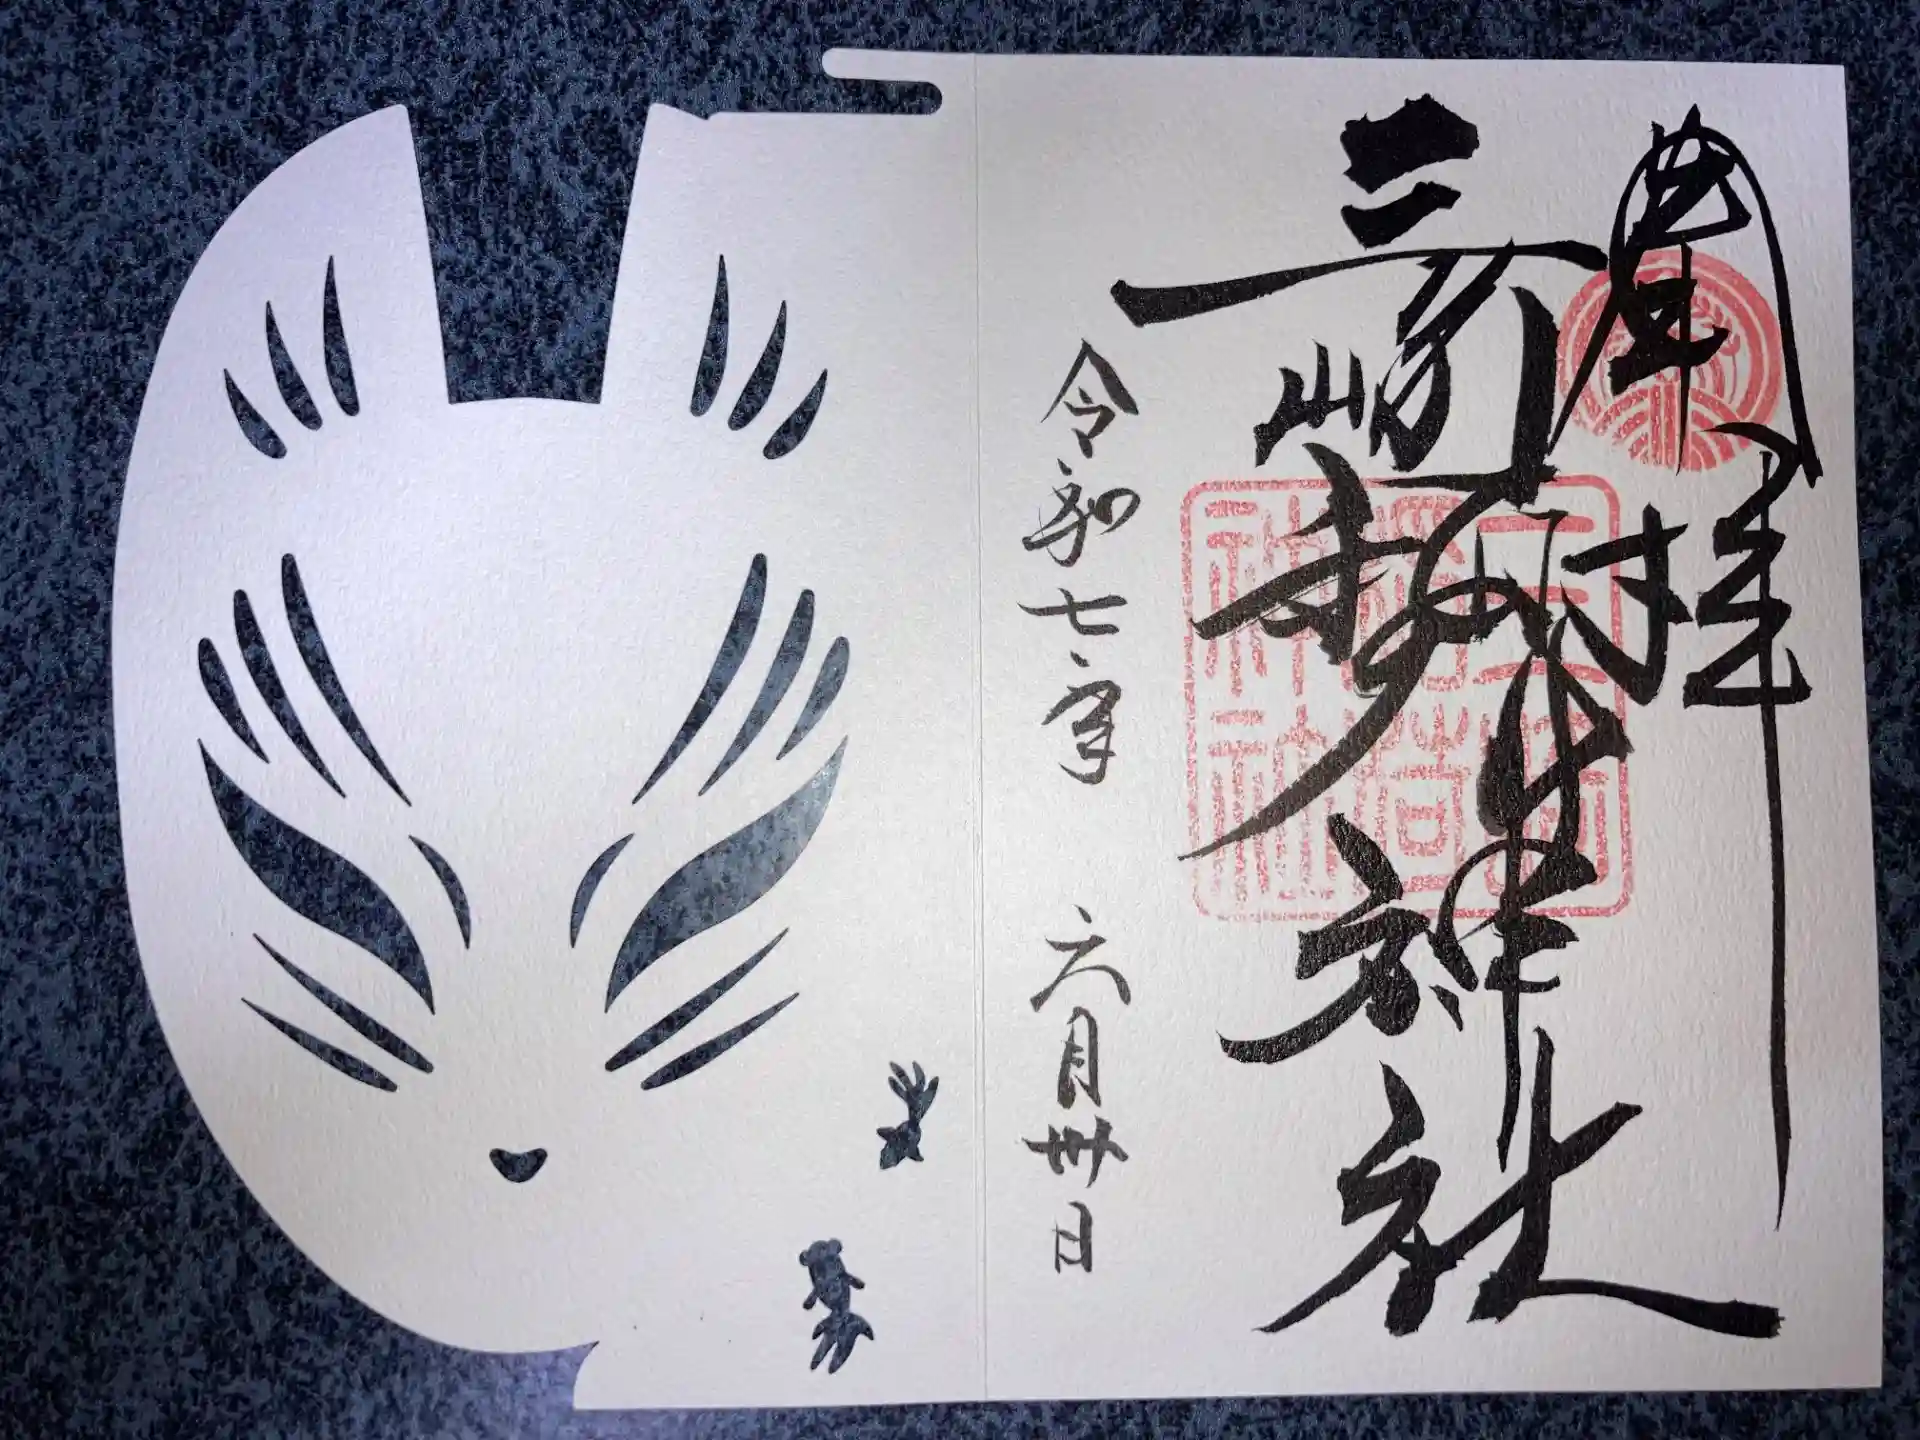 奉拝
三崎稲荷神社
令和七年 六月卅日